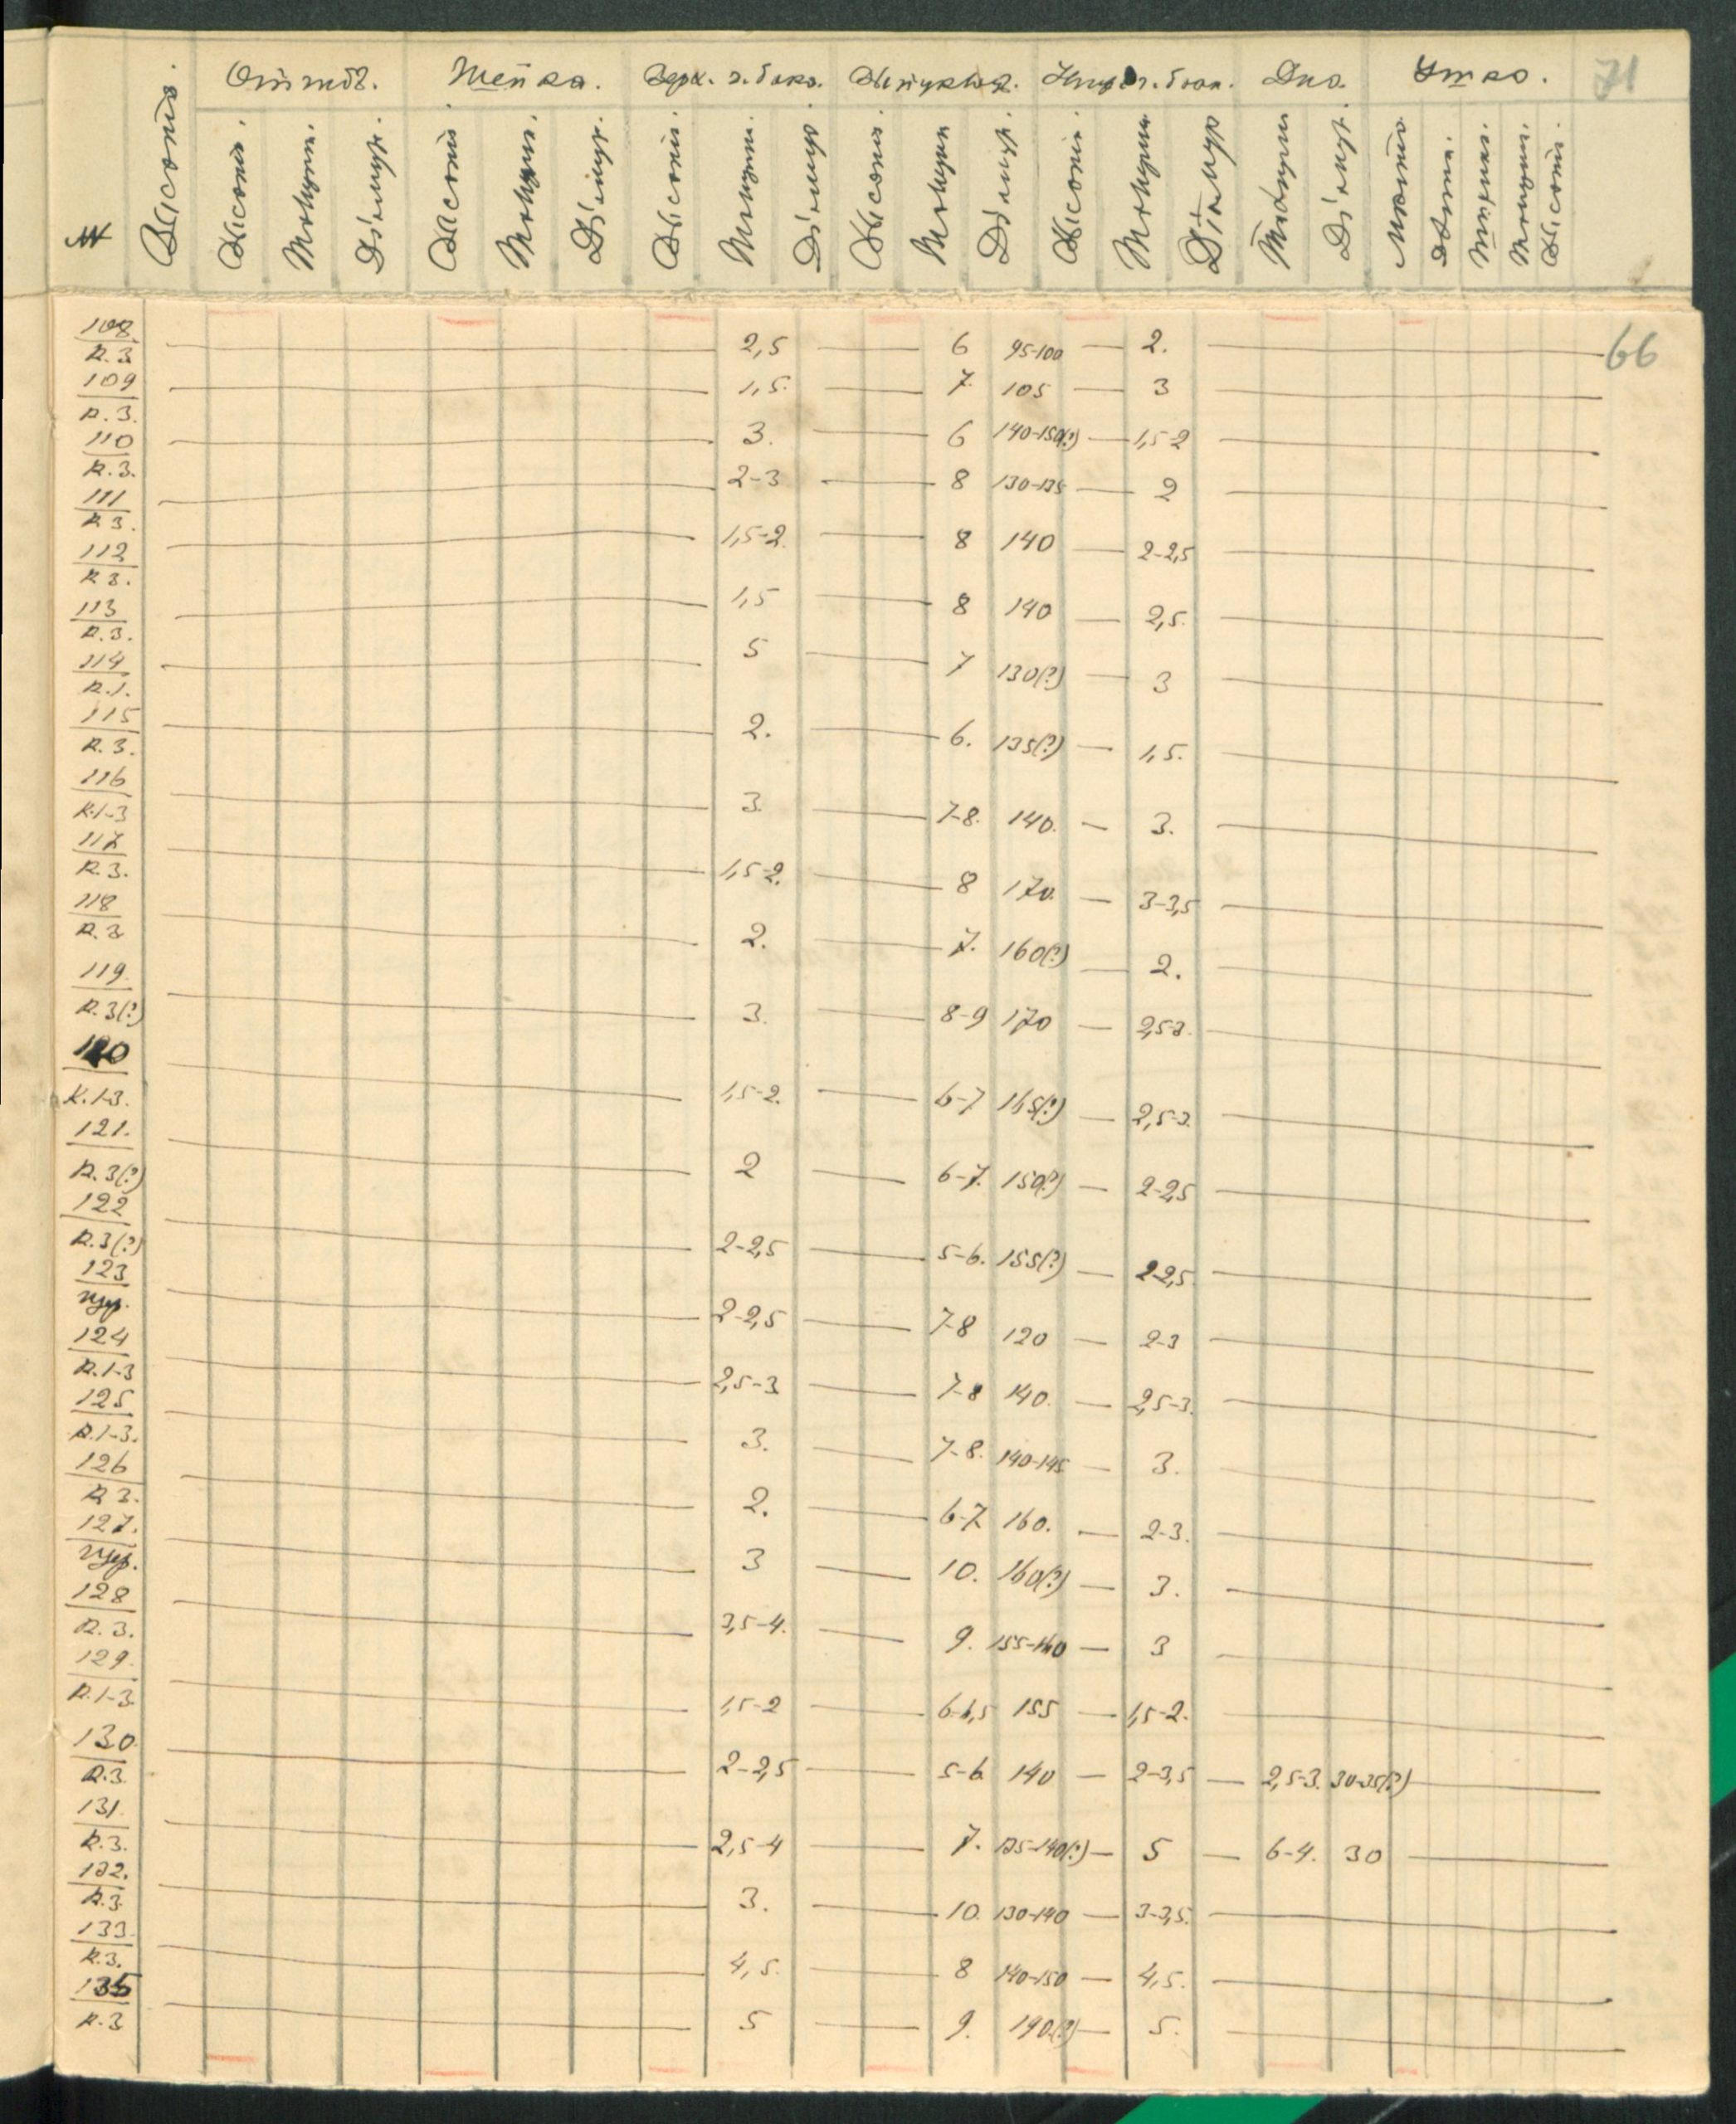 Шейка. Верх. ч. бока. Выпукл. Дно. Ушко. 71
№ Высота. Высота. Толщин. Діаметр. Высота Толщин. Діаметр. Высота. Толщин. Діаметр Высота. Толщин Діаметр. Высота. Толщин. Діаметр Толщин Діаметр. Высота.
108 2,5 — 6 95-100 — 2. — 66
К.3
109 1,5. — 7. 105 — 3
К.3.
110 3. — 6 140-150(?) — 1,5-2
К.3.
111 2-3 — 8 130-135 — 2
К.3.
112 1,5-2. — 8 140 — 2-2,5
К.3.
113 1,5 — 8 140 — 2,5.
К.3.
114 5 — 7 130(?) — 3
К.1.
115 2. — 6. 135(?) — 1,5.
К.3.
116 3. — 7-8. 140. — 3.
К.1-3
117 1,5-2. — 8 170. — 3-3,5
К.3.
118 2. — 7. 160(?) — 2.
К.3
119. 3. — 8-9 170 — 2,5-3.
К.3(?)
120 1,5-2. — 6-7 165(?) — 2,5-3.
К.1-3.
121. 2 — 6-7. 150(?) — 2-2,5
К.3(?)
122 2-2,5 — 5-6. 155(?) — 2-2,5.
К.3(?)
123 2-2,5 — 7-8 120 — 2-3
124 2,5-3 — 7-8 140. — 2,5-3.
К.1-3
125 3. — 7-8. 140-145 — 3.
К.1-3.
126 2. — 6-7. 160. — 2-3.
К.3.
127. 3 — 10. 160(?) — 3.
128 3,5-4. — 9. 155-160 — 3
К.3.
129. 1,5-2 — 6-6,5 155 — 1,5-2.
К.1-3.
130. 2-2,5 — 5-6 140 — 2-3,5 — 2,5-3. 30-35(?)
К.3.
131. 2,5-4 — 7. 135-140(?) — 5 — 6-4. 30
К.3.
132. 3. — 10. 130-140 — 3-3,5.
К.3.
133. 4,5. — 8 140-150 — 4,5.
К.3.
135 5 — 9. 190(?) — 5.
К.3